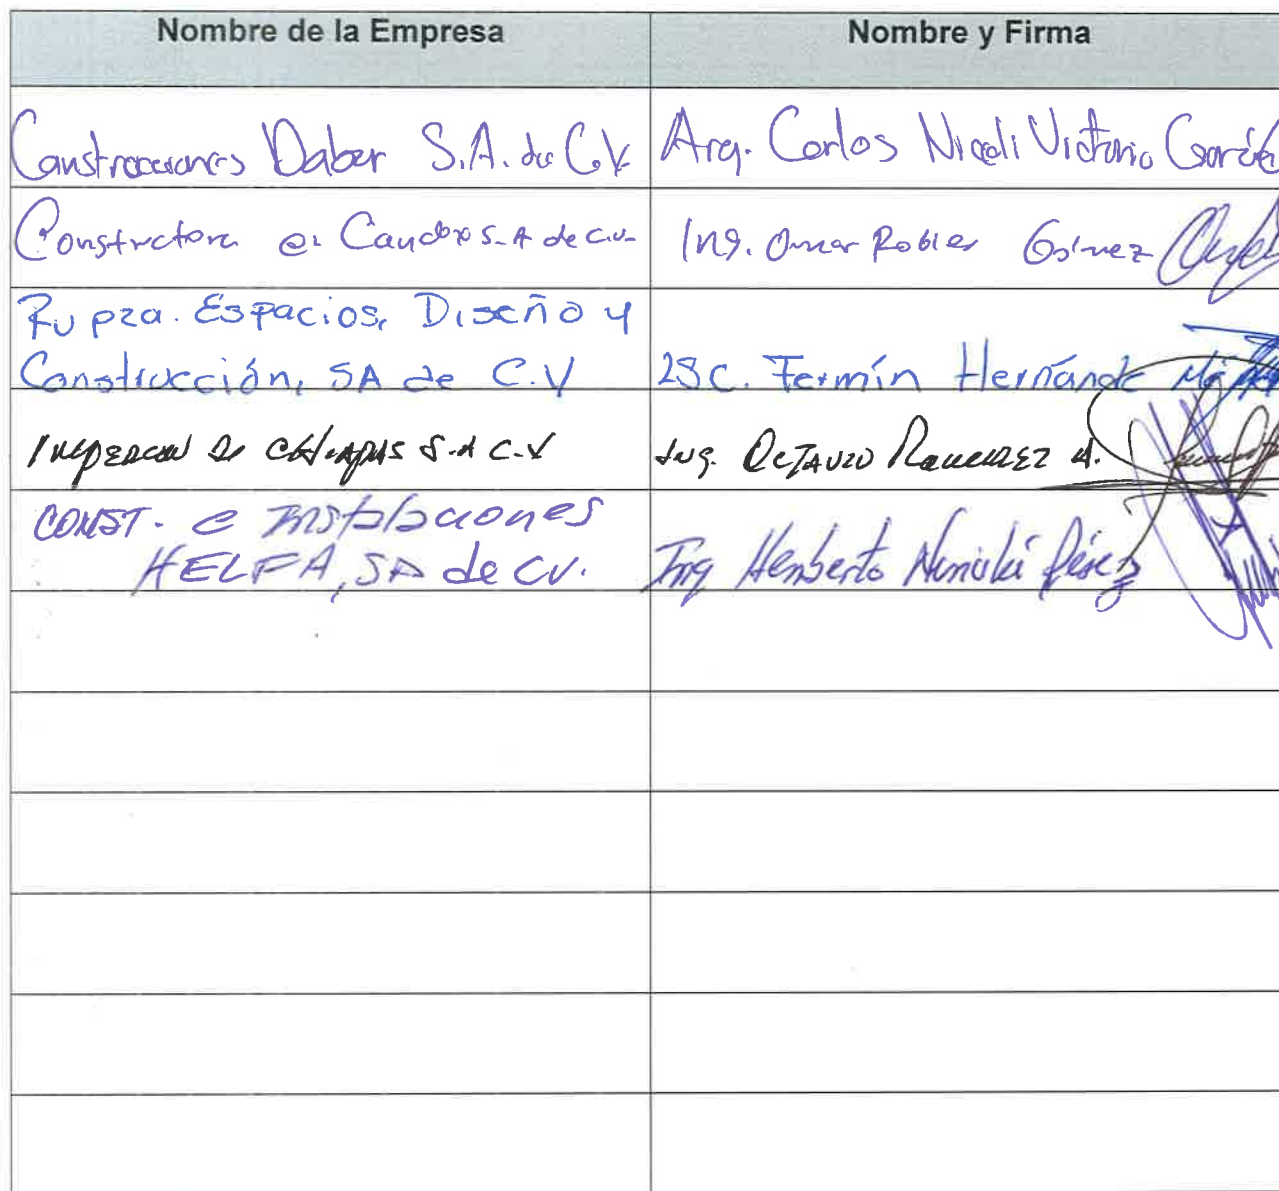 Nombre de la Empresa
Nombre y Firma
Construcciones Daber S.A. de C.V.
Arq. Carlos Nicoli Victorio García
Constructora el Candox S.A de C.V.
Ing. Omar Robles Gómez
Rupza. Espacios, Diseño y
Construcción, SA de C.V
LSC. Fermín Hernánde
de CHIAPAS S.A C.V
Ing. OCTAVIO RAMIREZ
CONST. e Instalaciones
HELFA, SA de CV.
Ing Heriberto Pérez